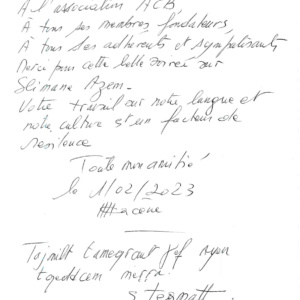 À l'association ACB
À tous ses membres fondateurs
À tous ses adhérents et sympathisants
Merci pour cette belle soirée sur
Slimane Azem.
Votre travail sur notre langue et
notre culture est un facteur de
résilence
Toute mon amitié
le 1/02/2023
Tajmilt tameqrant ɣef